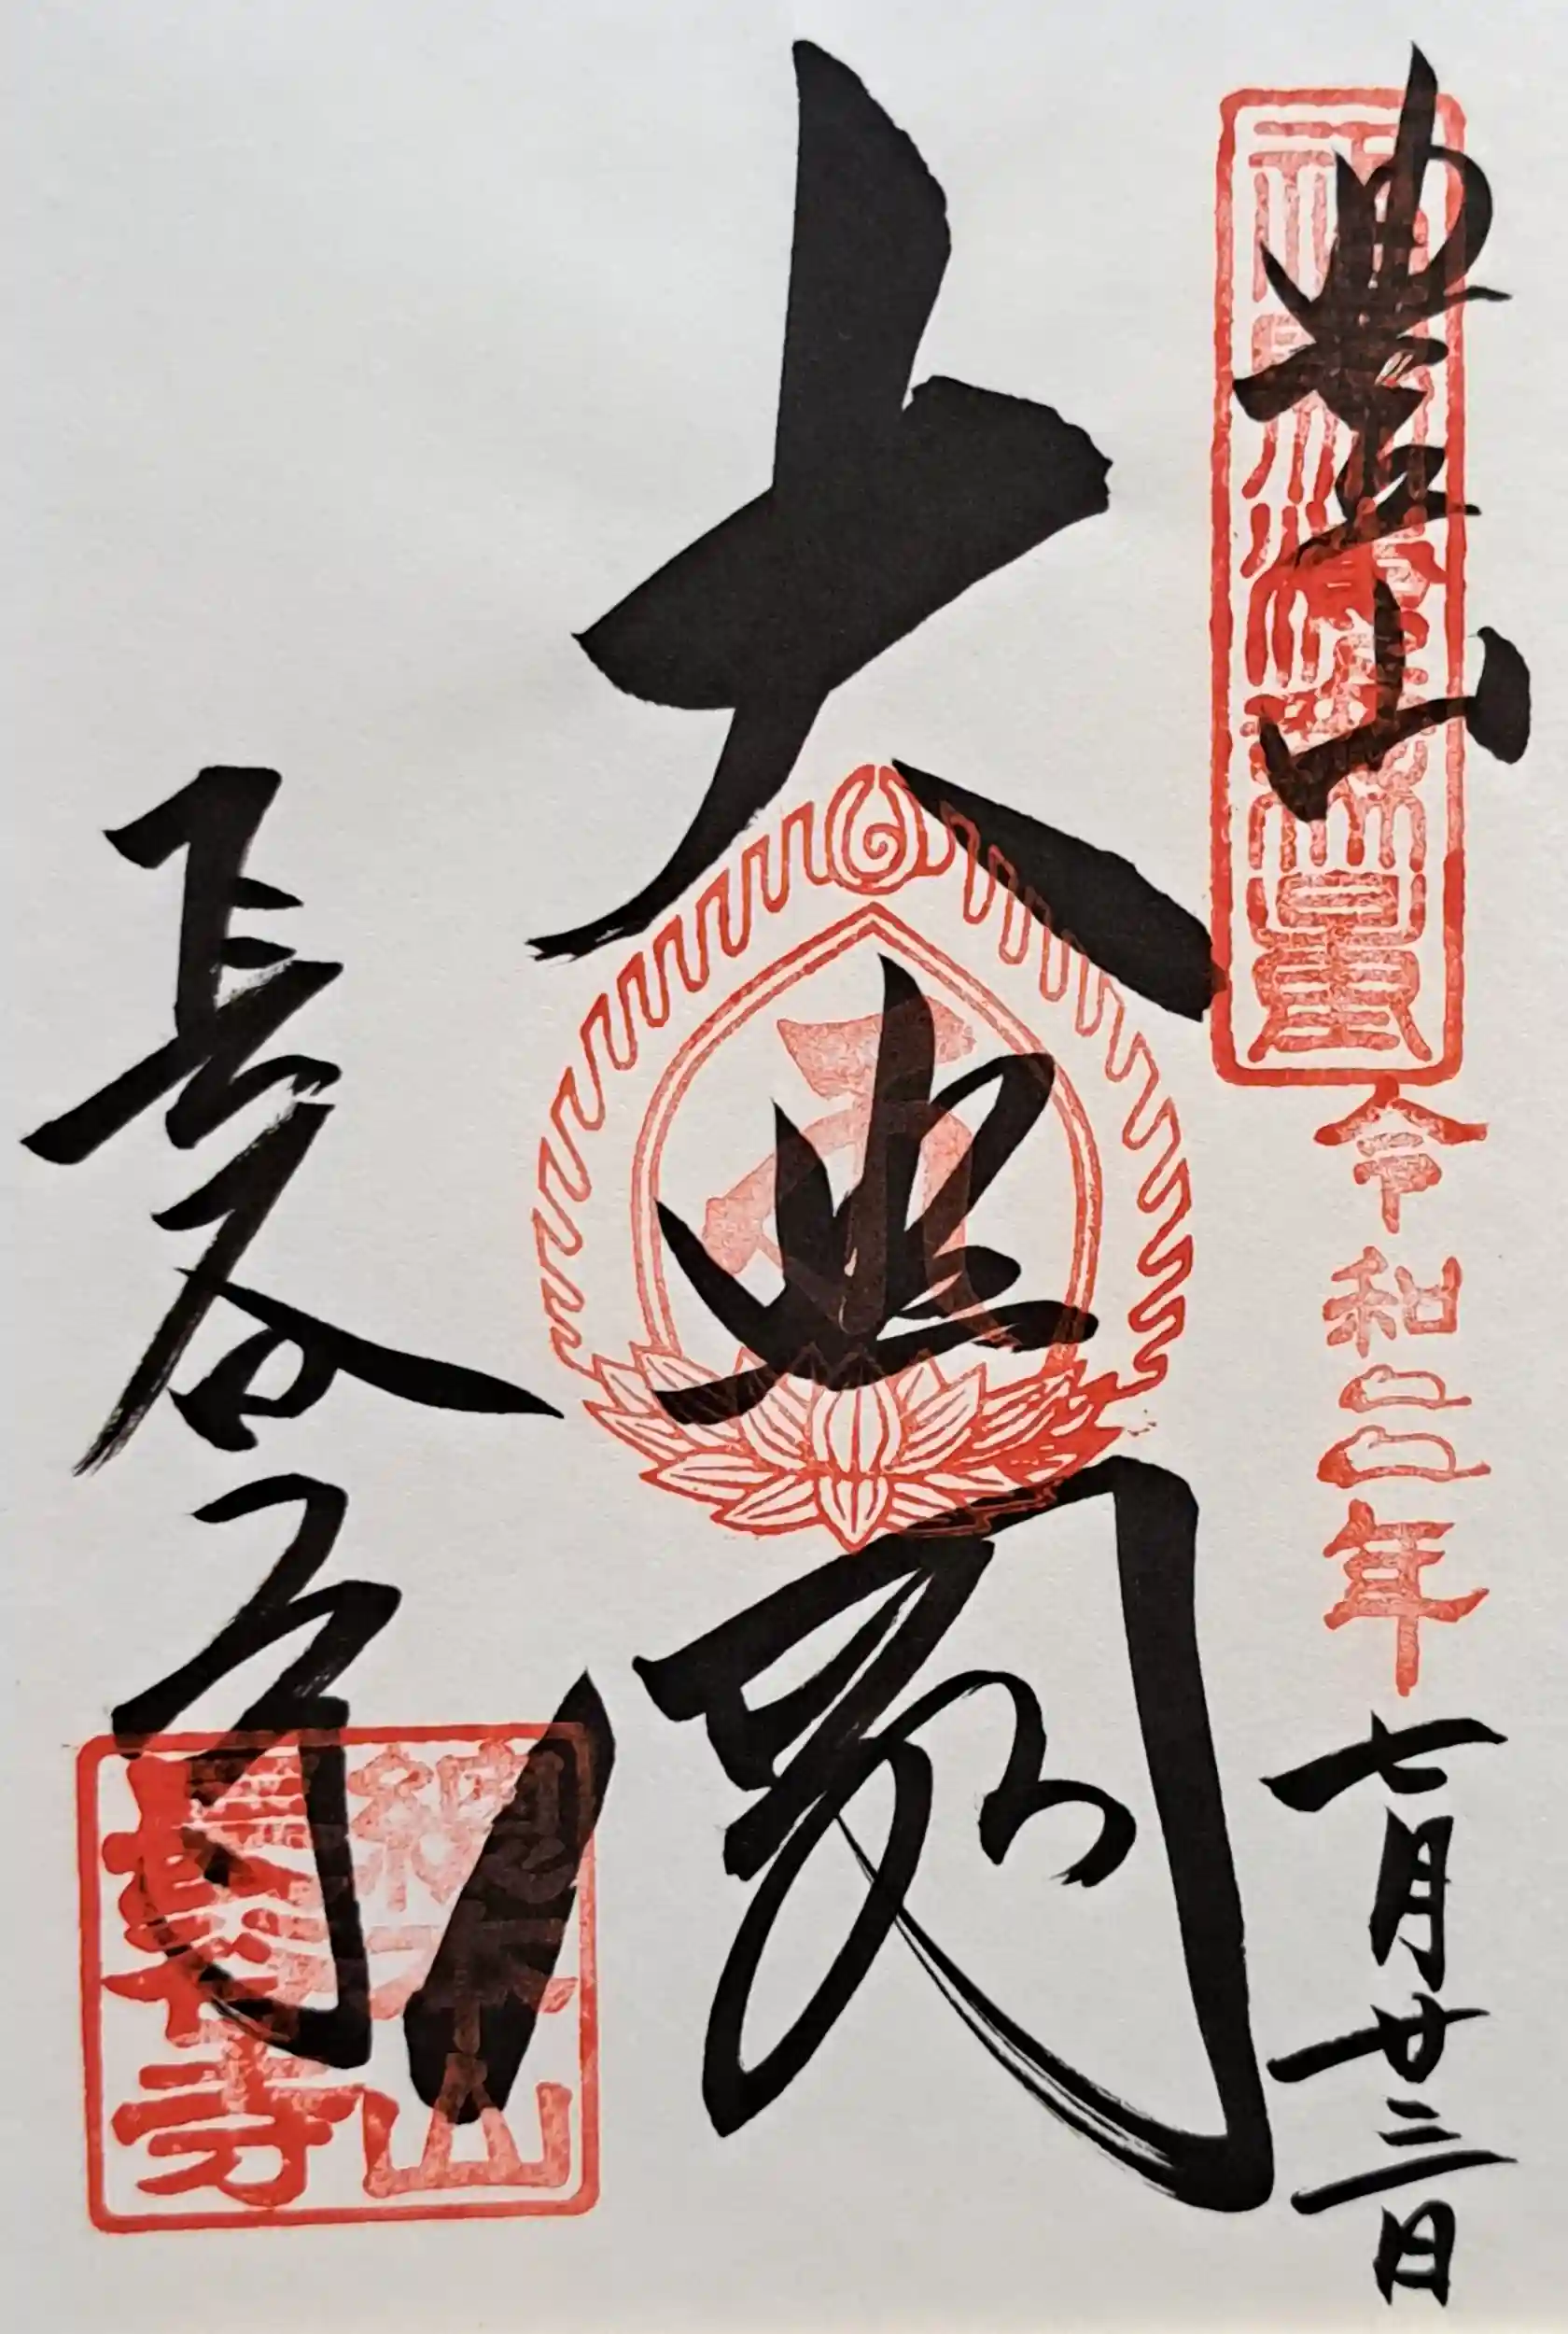 豊山
令和二年七月廿三日
大悲閣
長谷寺
總本山
長谷寺